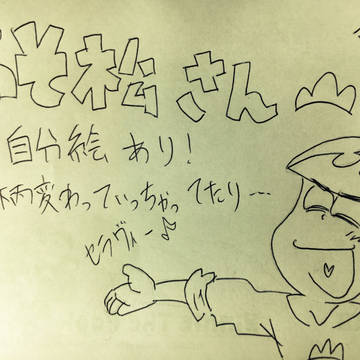 おそ松さん
自分絵あり!
柄変わっていっちゃってたり…
セラヴィー♪